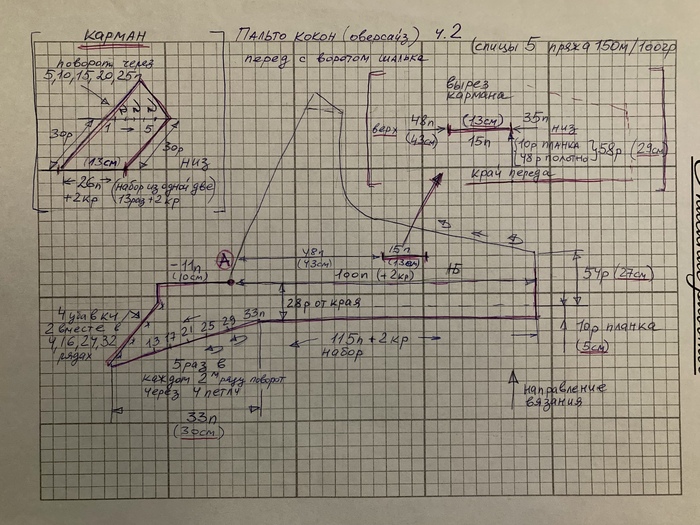 КАРМАН
Пальто кокон (оверсайз) ч.2
(спицы 5 пряжа 150м/100гр
перед с воротом шалька
поворот через
5,10,15,20,25п
30р
1 → 5
30р
(13см)
НИЗ
26п
+2кр
(набор из одной две
13раз + 2кр
вырез
кармана
верх
48п
(43см)
(13см)
15п
35п
низ
10р планка
48р полотно
58р (29см)
край переда
А
48п
(43см)
15п
(13см)
-11п
(10см)
100п (+2кр)
54р (27см)
28р от края
4 убавки
2 вместе в
4,16,24,32
рядах
13 17 21 25 29 33п
5 раз в
каждом 2м ряду поворот
через 4 петли
115п + 2кр
набор
10р планка
(5см)
33п
(30см)
направление
вязания